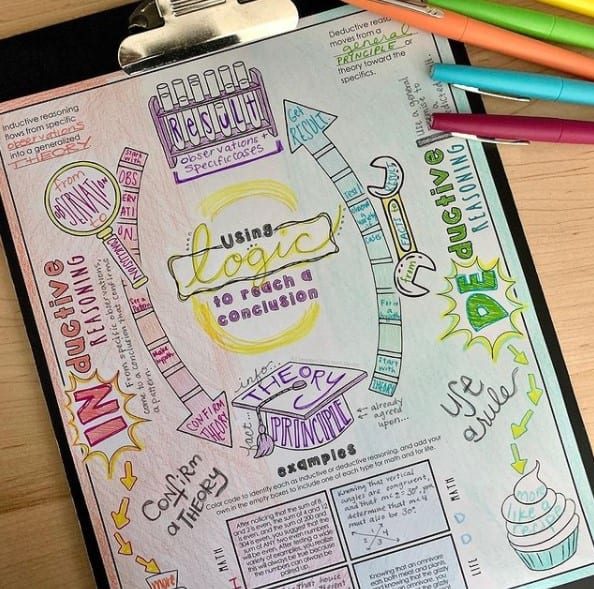 Inductive reasoning
flows from specific
observations
into a generalized
THEORY
Deductive reaso
moves from a
general
PRINCIPLE or
theory toward the
specifics.
Result
observations +
specific cases
Get
RESULT
from
OBSERVATION
to
CONCLUSION
Start
with
OBS
ERV
ATI
ON
See a
CONFIRM
THEORY
Start
with
THEORY
FACT
from
using
logic
to reach a
conclusion
INductive
REASONING
From specific observations,
came to a conclusion that confirms
a pattern.
DEductive
REASONING
use a general
fact...into...
THEORY
PRINCIPLE
already
agreed
upon...
Confirm
a THEORY
use
a rule
more
like a
recipe
more
examples
Color code to identify each as inductive or deductive reasoning, and add your
own in the empty boxes to include one of each type for math and for life.
MATH
After noticing that the sum of 6
and 2 is even, the sum of 4 and 12
is even, and the sum of 200 and
304 is even, you suggest that the
sum of ANY two even numbers
will be even. After testing a wide
variety of examples, you realize
this will always be true because
the numbers can always be
paired.
Knowing that vertical
angles are congruent,
and that m∠2 = 30°,
determine that m∠
must also be 30°.
MATH
LIFE
Knowing that an omnivore
eats both meat and plants,
and knowing that the grizzly
that house